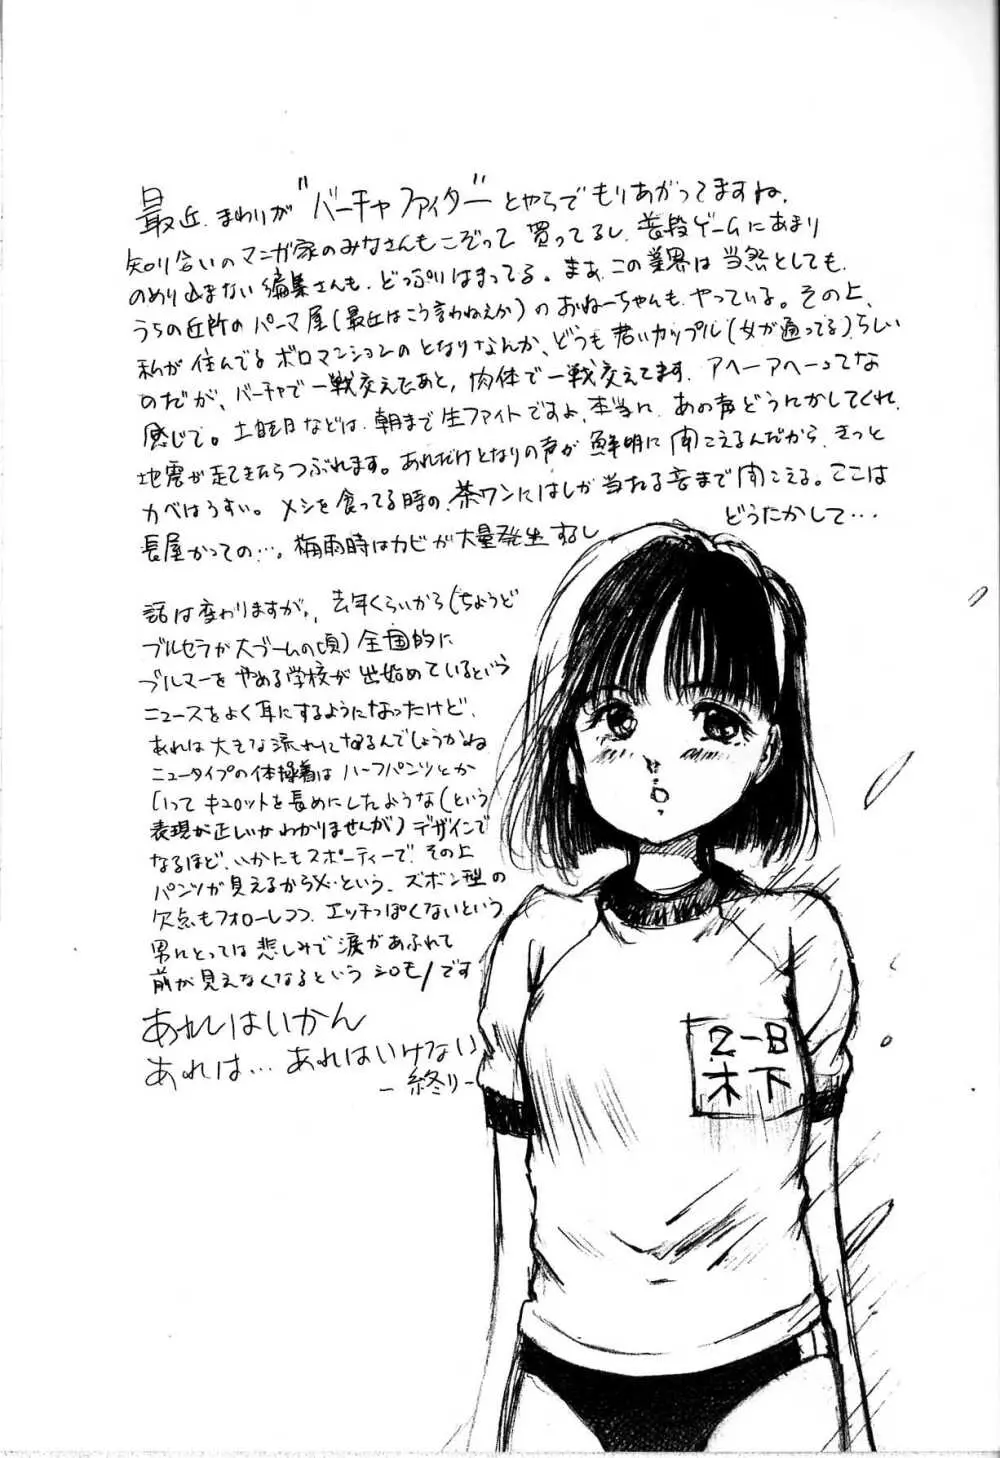 最近、まわりが"バーチャファイター"とやらでもりあがってますね、
知り合いのマンガ家のみなさんもこぞって買ってるし、普段ゲームにあまり
のめり込まない編集さんも、どっぷりはまってる。まぁ、この業界は当然としても、
うちの近所のパーマ屋(最近はこう言わねえか)のおねーちゃんも、やっている。その上、
私が住んでるボロマンションのとなりなんか、どうも若いカップル(女が通ってる)らしい
のだが、バーチャで一戦交えたあと、肉体で一戦交えてます、アヘーアヘーってな
感じで。土曜日などは、朝まで生ファイトですよ、本当に、あの声どうにかしてくれ、
地震が起きたらつぶれます。あれだけとなりの声が鮮明に聞こえるんだから、きっと
カベはうすい。メシを食ってる時の、茶ワンにはしが当たる音まで聞こえる。ここは
長屋かっての…。梅雨時はカビが大量発生するし
どうたかして…
話は変わりますが、去年くらいから(ちょうど
ブルセラが大ブームの頃)全国的に
ブルマーをやめる学校が出始めているという
ニュースをよく耳にするようになったけど、
あれは大きな流れになるんでしょうかね
ニュータイプの体操着はハーフパンツとか
いってキュロットを長めにしたような(という
表現が正しいかわかりませんが)デザインで
なるほど、いかにもスポーティーで、その上
パンツが見えるから×…という、ズボン型の
欠点もフォローしつつ、エッチっぽくないという
男にとっては悲しみで涙があふれて
前が見えなくなるというシロモノです
あれはいかん
あれは…あれはいけない
-終り-
2-B
木下